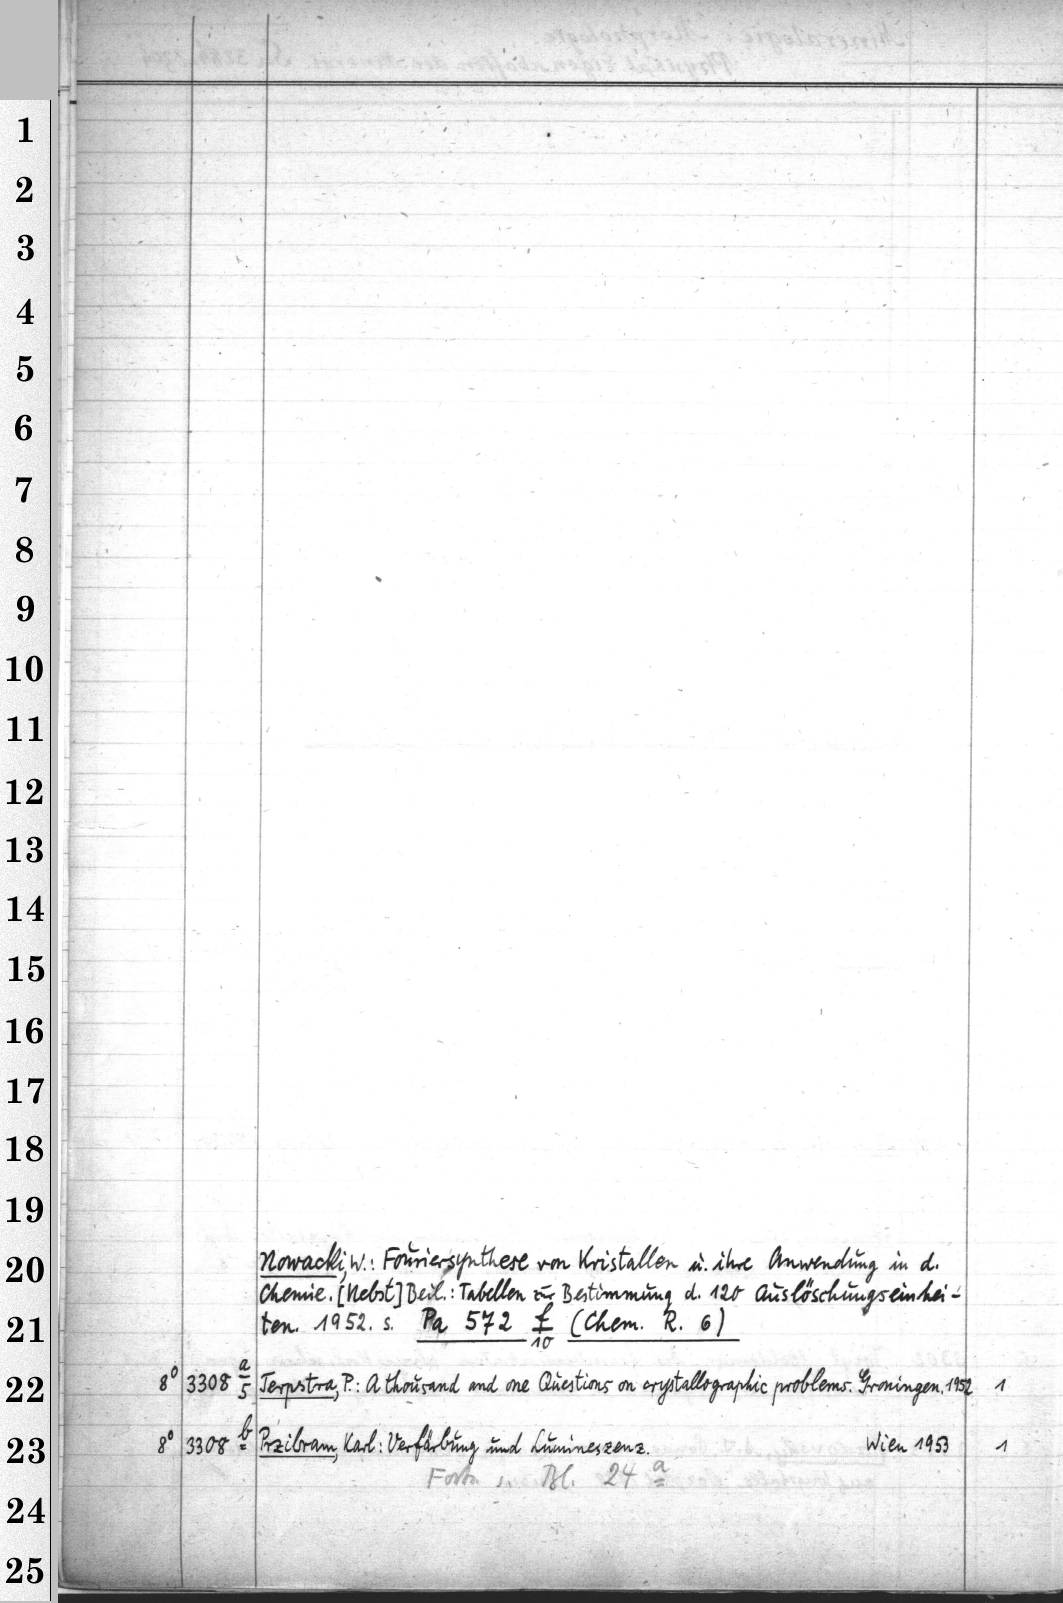 1
2
3
4
5
6
7
8
9
10
11
12
13
14
15
16
17
18
19
20 Nowacki, W.: Fouriersynthese von Kristallen u. ihre Anwendung in d.
Chemie. [Nebst] Beil.: Tabellen zur Bestimmung d. 120 Auslöschungseinhei-
21 ten. 1952. s. Pa 572 f/10 (Chem. R. 6)
22 8° 3308 a/5 Terpstra, P.: A thousand and one Questions on crystallographic problems. Groningen. 1952 1
23 8° 3308 b Przibram, Karl: Verfärbung und Lumineszenz. Wien 1953 1
Forts. s. Bl. 24 a
24
25